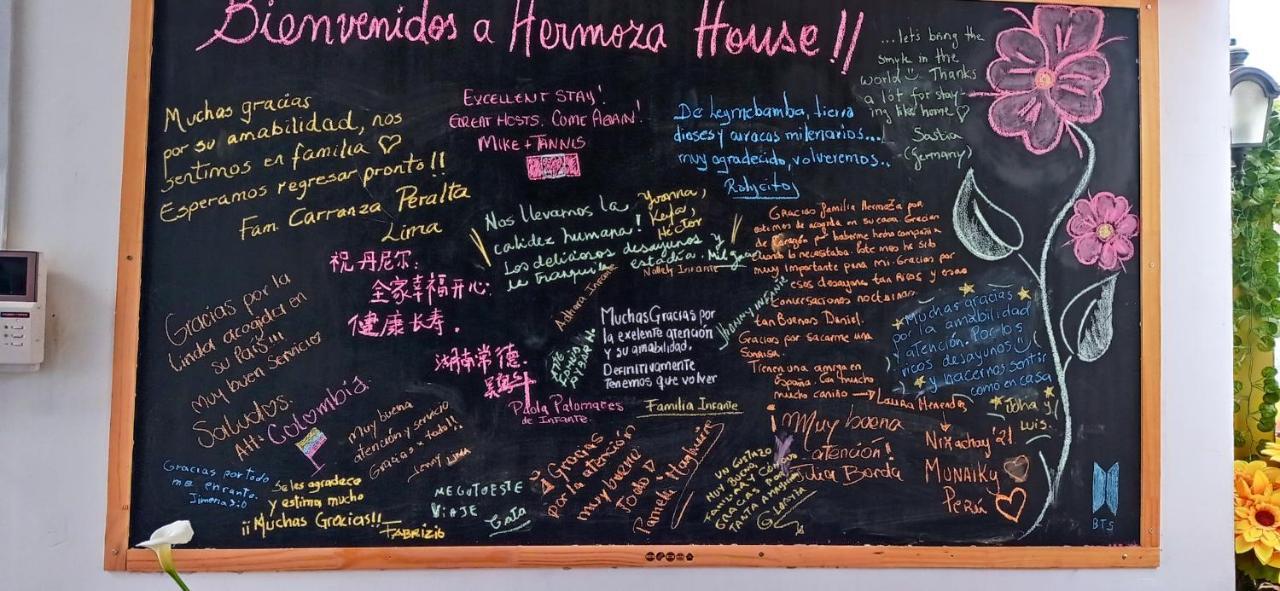 Bienvenidos a Hermoza House!!
Muchas gracias
por su amabilidad, nos
sentimos en familia
Esperamos regresar pronto!!
Fam. Carranza Peralta
Lima
EXCELLENT STAY!
GREAT HOSTS. COME AGAIN!
MIKE + TANNIS
De Leymebamba, tierra
dioses y curacas milenarios...
muy agradecido, volveremos..
Ralycitos
...let's bring the
smile in the
world Thanks
a lot for stay-
ing like home
Saskia
(Germany)
祝丹尼尔:
全家幸福开心.
健康长寿.
湖南常德.
Nos llevamos la
calidez humana!
Los deliciosos desayunos y
la tranquila estadía.
Yvonna,
Keyla,
Héctor
Gracias familia Hermoza por
de corazón por haberme hecho compañía
cuando lo necesitaba. Este mes ha sido
muy importante para mi. Gracias por
esos desayunos tan ricos y esas
conversaciones nocturnas
tan buenas Daniel.
Gracias por sacarme una
sonrisa.
Tienen una amiga en
España. Con mucho
mucho cariño → Laura Menendes
Gracias por la
linda acogida en
su país!!!
muy buen servicio
Saludos.
Att: Colombia.
Nolely Infante
Anhara Infante
Jhanny Infante
Muchas Gracias por
la exelente atención
y su amabilidad,
Definitivamente
Tenemos que volver
Familia Infante
Paola Palomares
de Infante.
Muchas gracias
por la amabilidad
y atención. Por los
ricos desayunos
y hacernos sentir
como en casa
Joha y
Luis.
Muy buena
atención y servicio
Gracias x todo!!
Jenny Lima
Gracias por todo
me encanto.
Jimena :)
Se les agradece
y estima mucho
¡¡Muchas Gracias!!
Fabrizio
ME GUTO ESTE
VIAJE
Cata
Gracias
por la atención
muy bueno
todo
Pamela Haguiura
UN GUSTAZO
MUY BUENO,
FAMILIAR Y CÓMODO
GRACIAS POR
TANTA AMABILIDAD
Gloria
Muy buena
atención!
Julia Borda
Nixachay '21
MUNAIKY
Perú
BTS